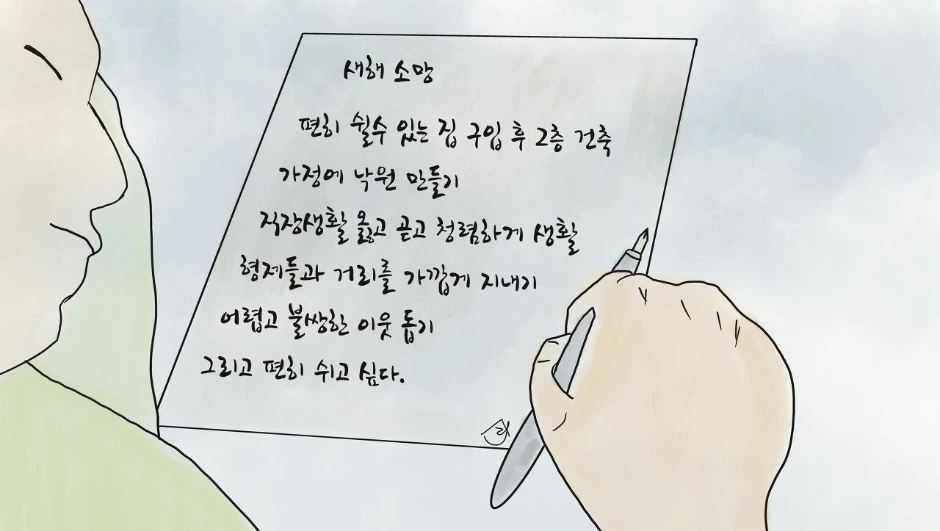 새해 소망
편히 쉴수 있는 집 구입 후 2층 건축
가정에 낙원 만들기
직장생활 옳고 곧고 청렴하게 생활
형제들과 거리를 가깝게 지내기
어렵고 불쌍한 이웃 돕기
그리고 편히 쉬고 싶다.